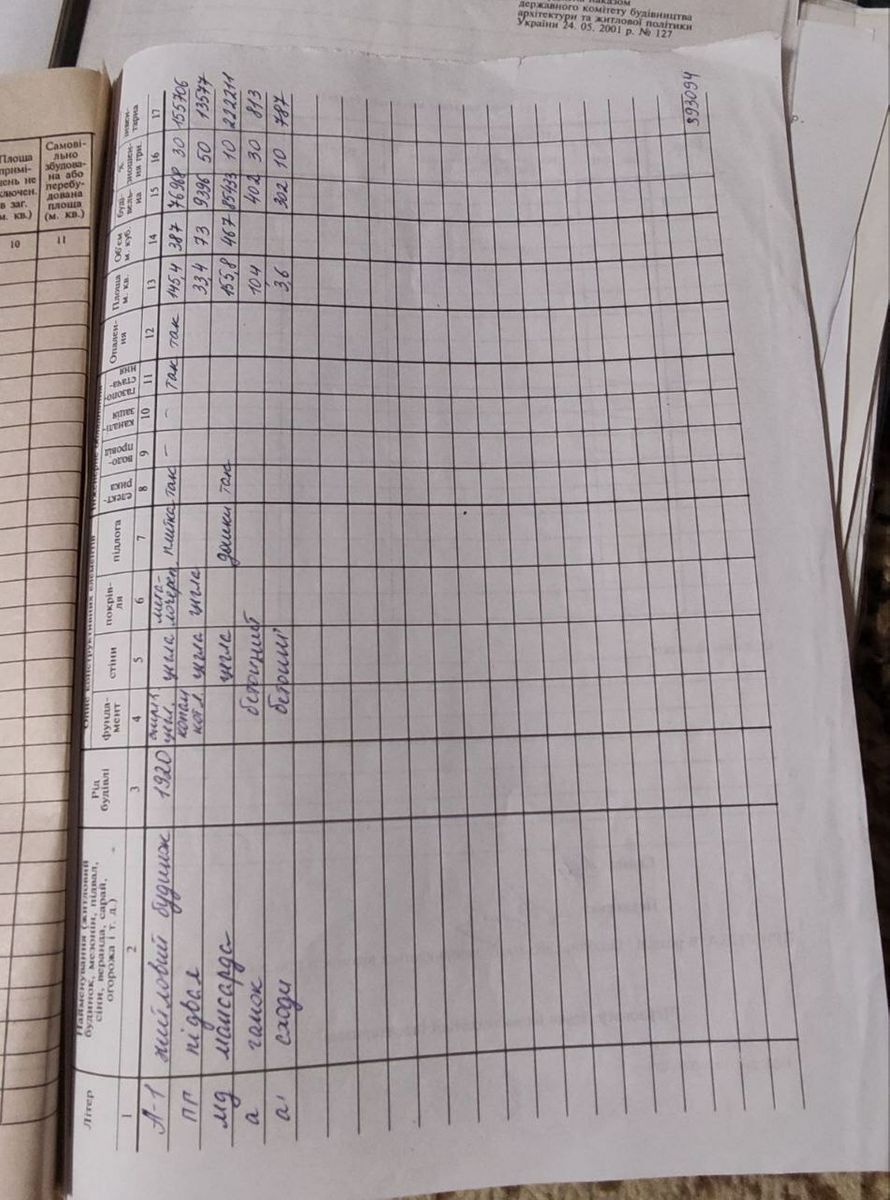 наказом
державного комітету будівництва
архітектури та житлової політики
України 24. 05. 2001 р. № 127
Площа
примі-
щень не
включен.
в заг.
(м. кв.)
Самові-
льно
збудова-
на або
перебу-
дована
площа
(м. кв.)
10 11
Опис конструктивних елементів
Літер
Найменування (житловий
будинок, мезонін, підвал,
сіни, веранда, сарай,
огорожа і т. д.)
Рід
будівлі
фунда-
мент
стіни
покрів-
ля
підлога
елект-
рика
водо-
провід
каналі-
зація
газопо-
стача-
ння
Опален-
ня
Площа
м. кв.
Об'єм
м. куб.
буді-
вель-
на
%
зношен-
ня
грн.
інвен-
тарна
1 2 3 4 5 6 7 8 9 10 11 12 13 14 15 16 17
А-1 житловий будинок 1920 цегл. цегла мета-
лочереп. плитка так – – так так 145,4 387 76968 30 155706
пп підвал цегла цегла 33,4 73 9396 50 13577
мд мансарда цегла дошки так 155,8 467 10 222211
а ганок бетонний 10,4 402 30 813
а' сходи бетонні 3,6 302 10 787
393094